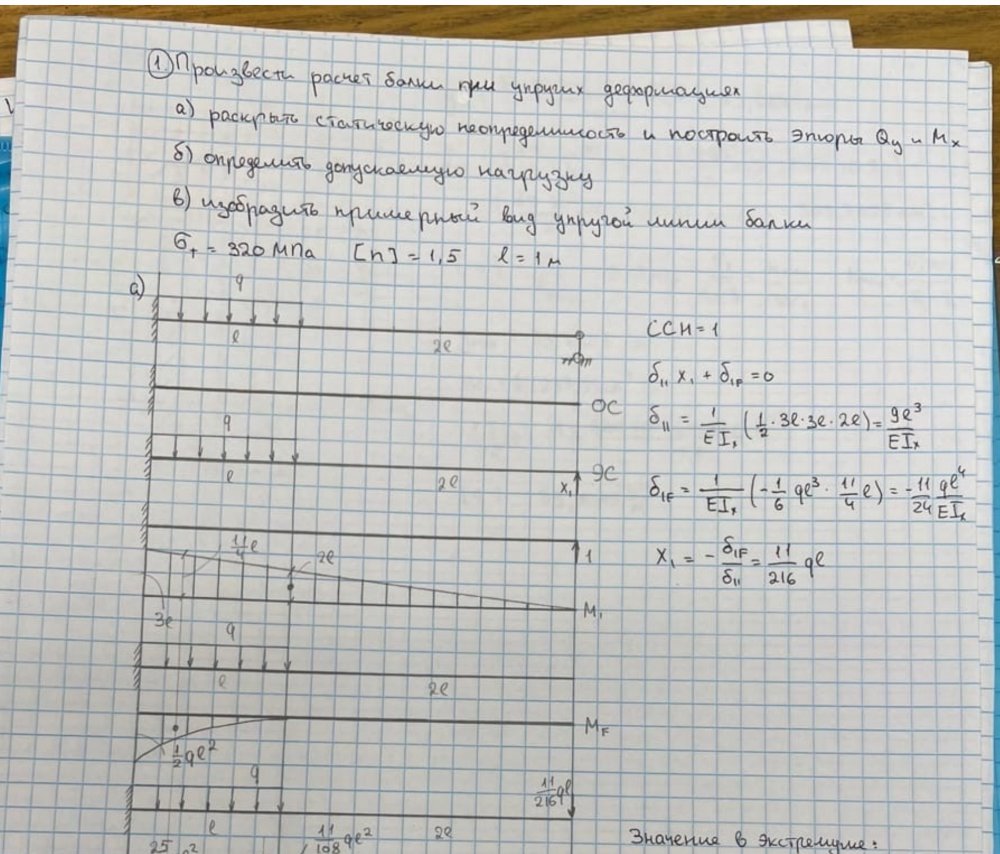 1 Произвести расчет балки при упругих деформациях
а) раскрыть статическую неопределимость и построить эпюры Qy и Mx
б) определить допускаемую нагрузку
в) изобразить примерный вид упругой линии балки
σт = 320 МПа [n] = 1,5 l = 1 м
а)
q
l 2l
ССН = 1
δ11 x1 + δ1F = 0
ОС
δ11 = 1/EIx (1/2 · 3l · 3l · 2l) = 9l³/EIx
q
l 2l
x1 ЭС
δ1F = 1/EIx (-1/6 ql³ · 11/4 l) = -11/24 ql⁴/EIx
1
x1 = -δ1F/δ11 = 11/216 ql
11/4 l 2l
3l
M1
q
l 2l
MF
1/2 ql²
q
11/216 ql
l 2l
25
11/108 ql²
Значение в экстремуме: